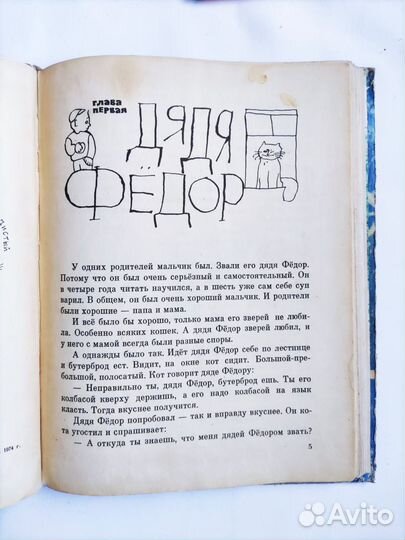 глава
первая
ДЯДЯ
ФЁДОР
У одних родителей мальчик был. Звали его дядя Фёдор.
Потому что он был очень серьёзный и самостоятельный. Он
в четыре года читать научился, а в шесть уже сам себе суп
варил. В общем, он был очень хороший мальчик. И родители
были хорошие — папа и мама.
И всё было бы хорошо, только мама его зверей не люби-
ла. Особенно всяких кошек. А дядя Фёдор зверей любил, и
у него с мамой всегда были разные споры.
А однажды было так. Идёт дядя Фёдор себе по лестнице
и бутерброд ест. Видит, на окне кот сидит. Большой-пре-
большой, полосатый. Кот говорит дяде Фёдору:
— Неправильно ты, дядя Фёдор, бутерброд ешь. Ты его
колбасой кверху держишь, а его надо колбасой на язык
класть. Тогда вкуснее получится.
Дядя Фёдор попробовал — так и вправду вкуснее. Он ко-
та угостил и спрашивает:
— А откуда ты знаешь, что меня дядей Фёдором звать?
5
1974 г.
Avito